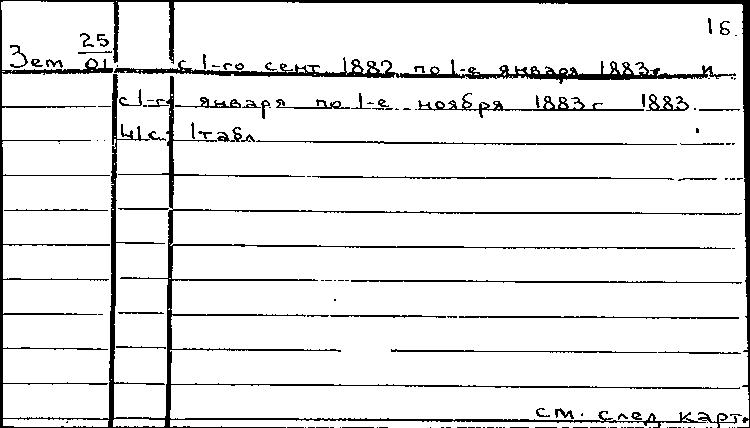 16.
25
Зем 01 с 1-го сент 1882 по 1-е января 1883г. и
с 1-го января по 1-е ноября 1883г 1883.
41с. 1табл
см. след карт.